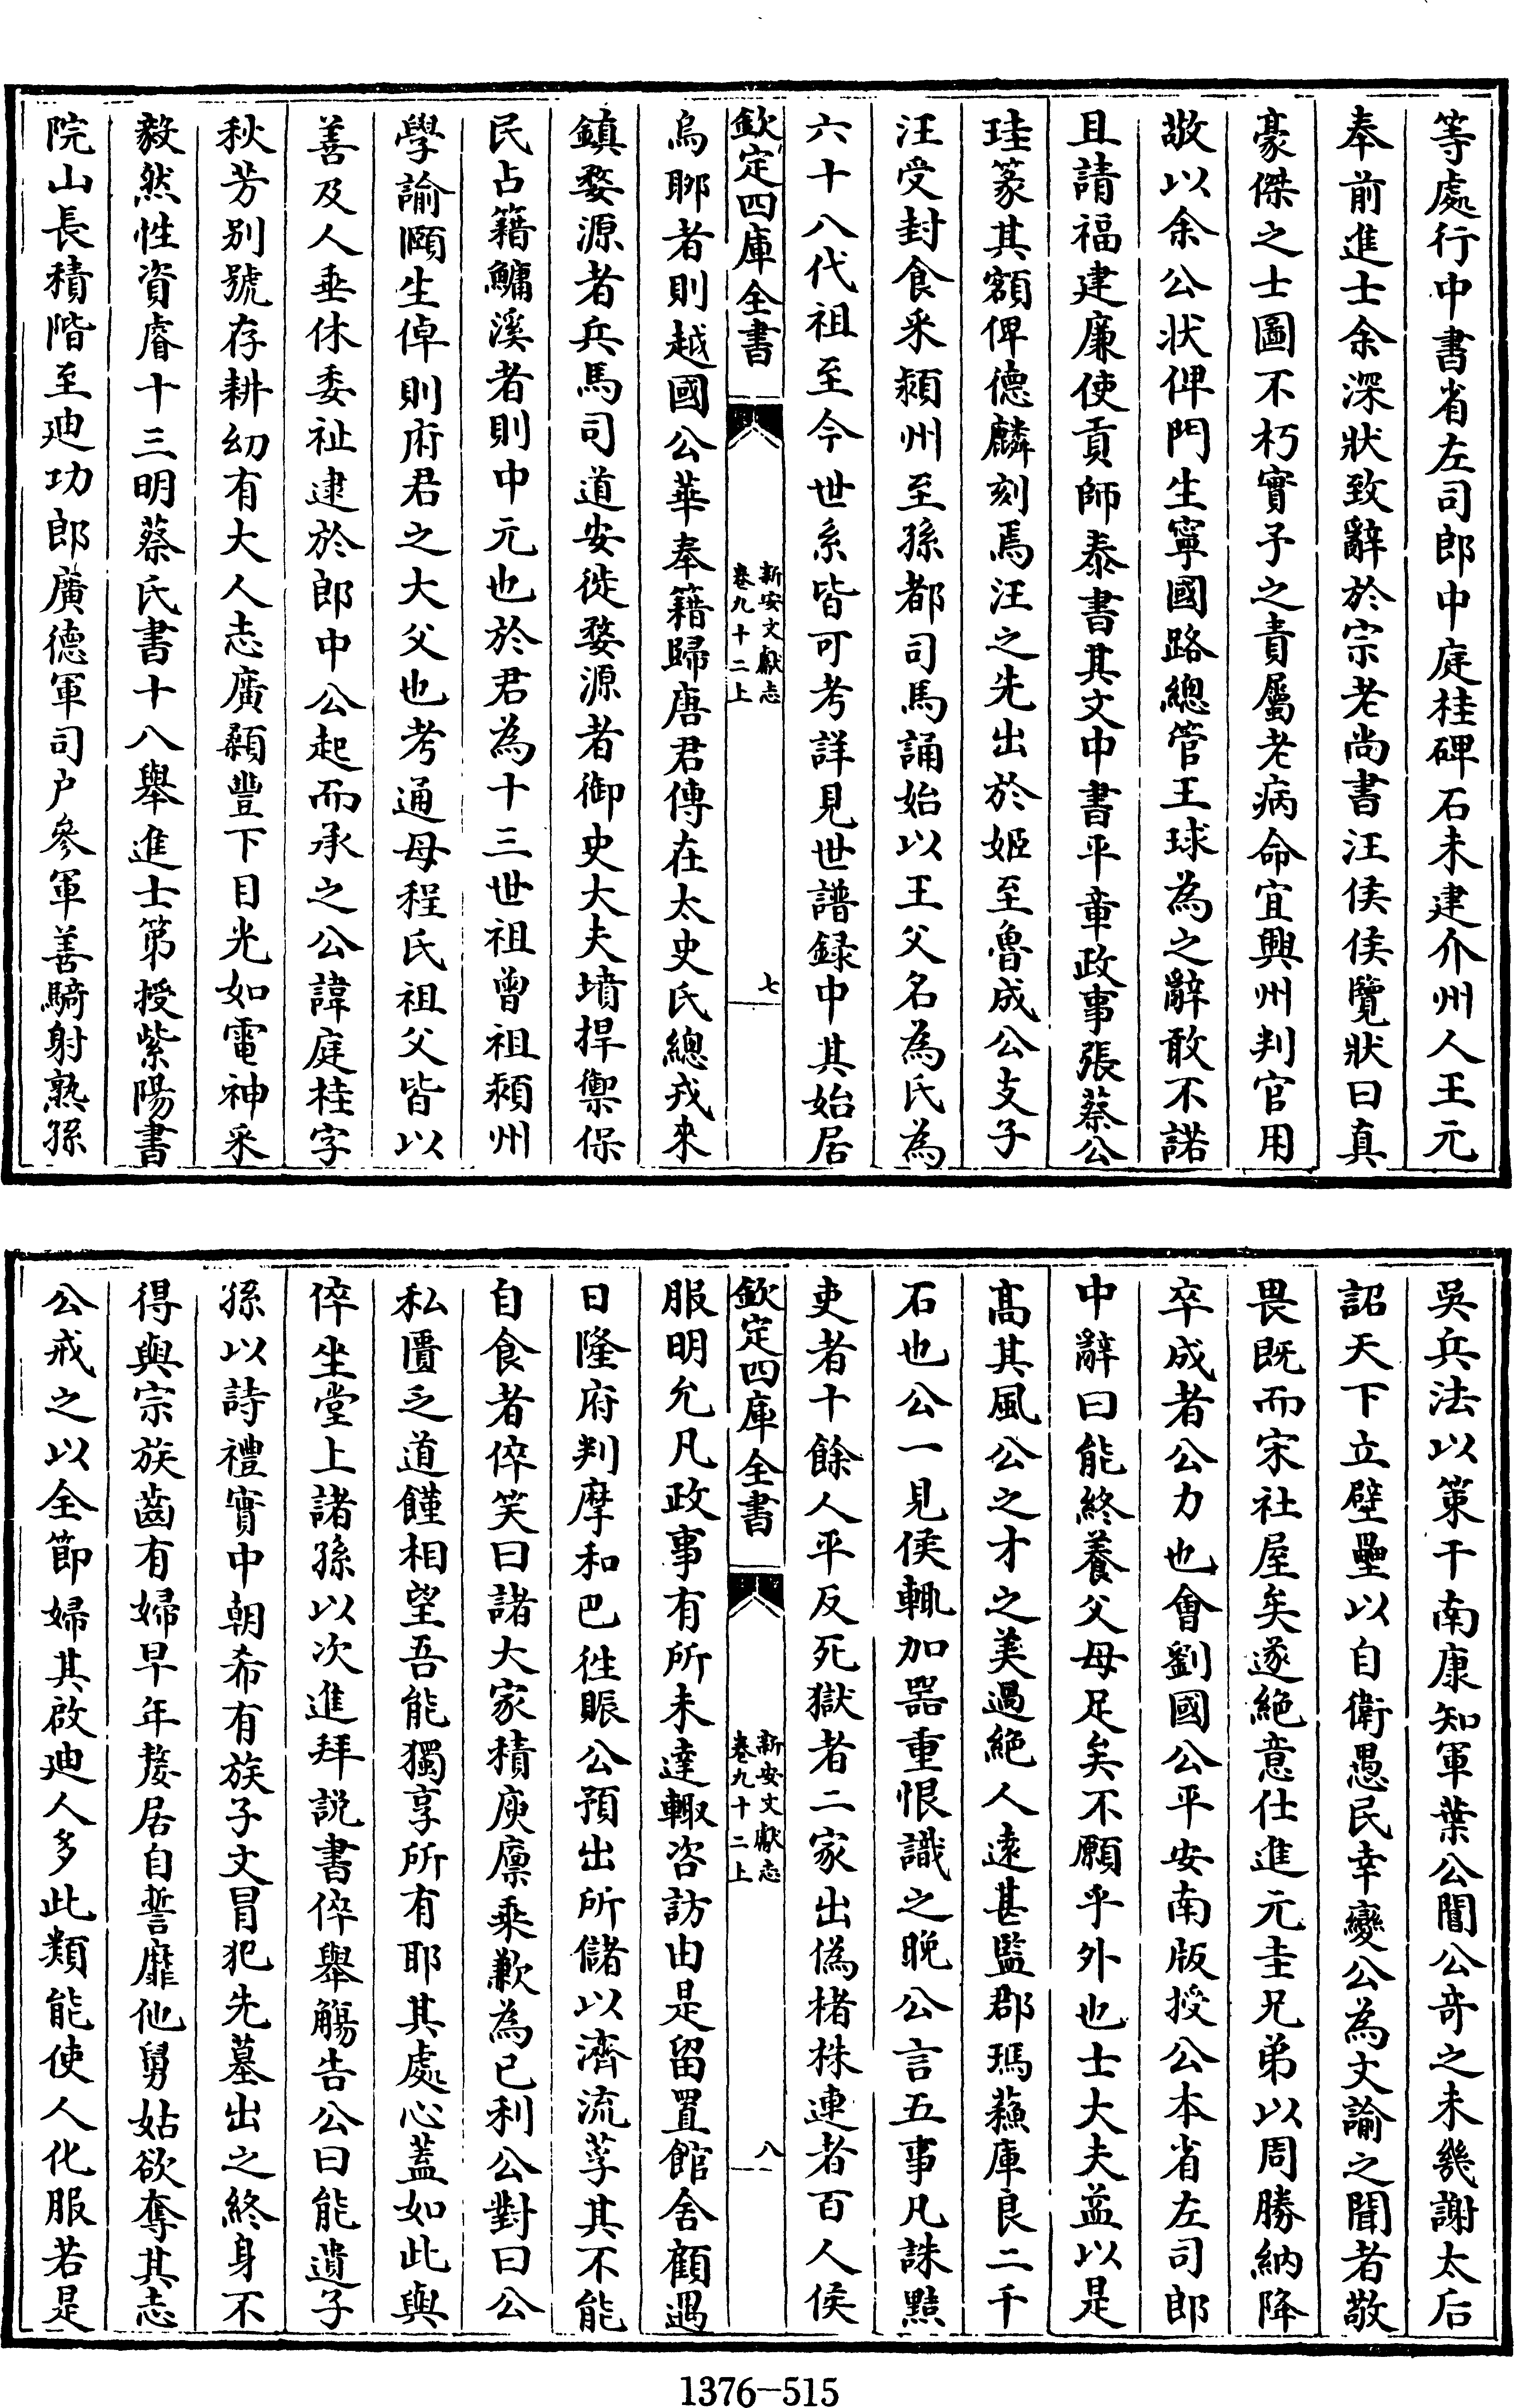 等處行中書省左司郎中庭桂碑石未建介州人王元
奉前進士余深狀致辭於宗老尚書汪侯侯覽狀曰真
豪傑之士圖不朽實子之責屬老病命宜興州判官用
敬以余公狀俾門生寧國路總管王球為之辭敢不諾
且請福建廉使貢師泰書其文中書平章政事張蔡公
珪篆其額俾德麟刻焉汪之先出於姬至魯成公支子
汪受封食采潁州至孫都司馬誦始以王父名為氏為
六十八代祖至今世系皆可考詳見世譜録中其始居
欽定四庫全書
新安文獻志
卷九十二上
七
烏聊者則越國公華奉籍歸唐君傳在太史氏總戎來
鎮婺源者兵馬司道安徙婺源者御史大夫墳捍禦保
民占籍鱅溪者則中元也於君為十三世祖曾祖潁州
學諭頤生倬則府君之大父也考通母程氏祖父皆以
善及人垂休委祉逮於郎中公起而承之公諱庭桂字
秋芳别號存耕幼有大人志廣顙豐下目光如電神采
毅然性資睿十三明蔡氏書十八舉進士第授紫陽書
院山長積階至廸功郎廣德軍司户參軍善騎射熟孫
吳兵法以策干南康知軍葉公閶公竒之未幾謝太后
詔天下立壁壘以自衛愚民幸變公為文諭之聞者敬
畏既而宋社屋矣遂絶意仕進元圭兄弟以周勝納降
卒成者公力也會劉國公平安南版授公本省左司郎
中辭曰能終養父母足矣不願乎外也士大夫益以是
高其風公之才之美過絶人逺甚監郡瑪蘓庫良二千
石也公一見侯輒加器重恨識之晚公言五事凡誅黠
吏者十餘人平反死獄者二家出偽楮株連者百人侯
欽定四庫全書
新安文獻志
卷九十二上
八
服明允凡政事有所未達輙咨訪由是留置館舍顧遇
日隆府判摩和巴徃賑公預出所儲以濟流莩其不能
自食者倅笑曰諸大家積庾廩乘歉為已利公對曰公
私匱乏道饉相望吾能獨享所有耶其處心蓋如此與
倅坐堂上諸孫以次進拜説書倅舉觴告公曰能遺子
孫以詩禮實中朝希有族子文冒犯先墓出之終身不
得與宗族齒有婦早年嫠居自誓靡他舅姑欲奪其志
公戒之以全節婦其啟廸人多此類能使人化服若是
1376-515